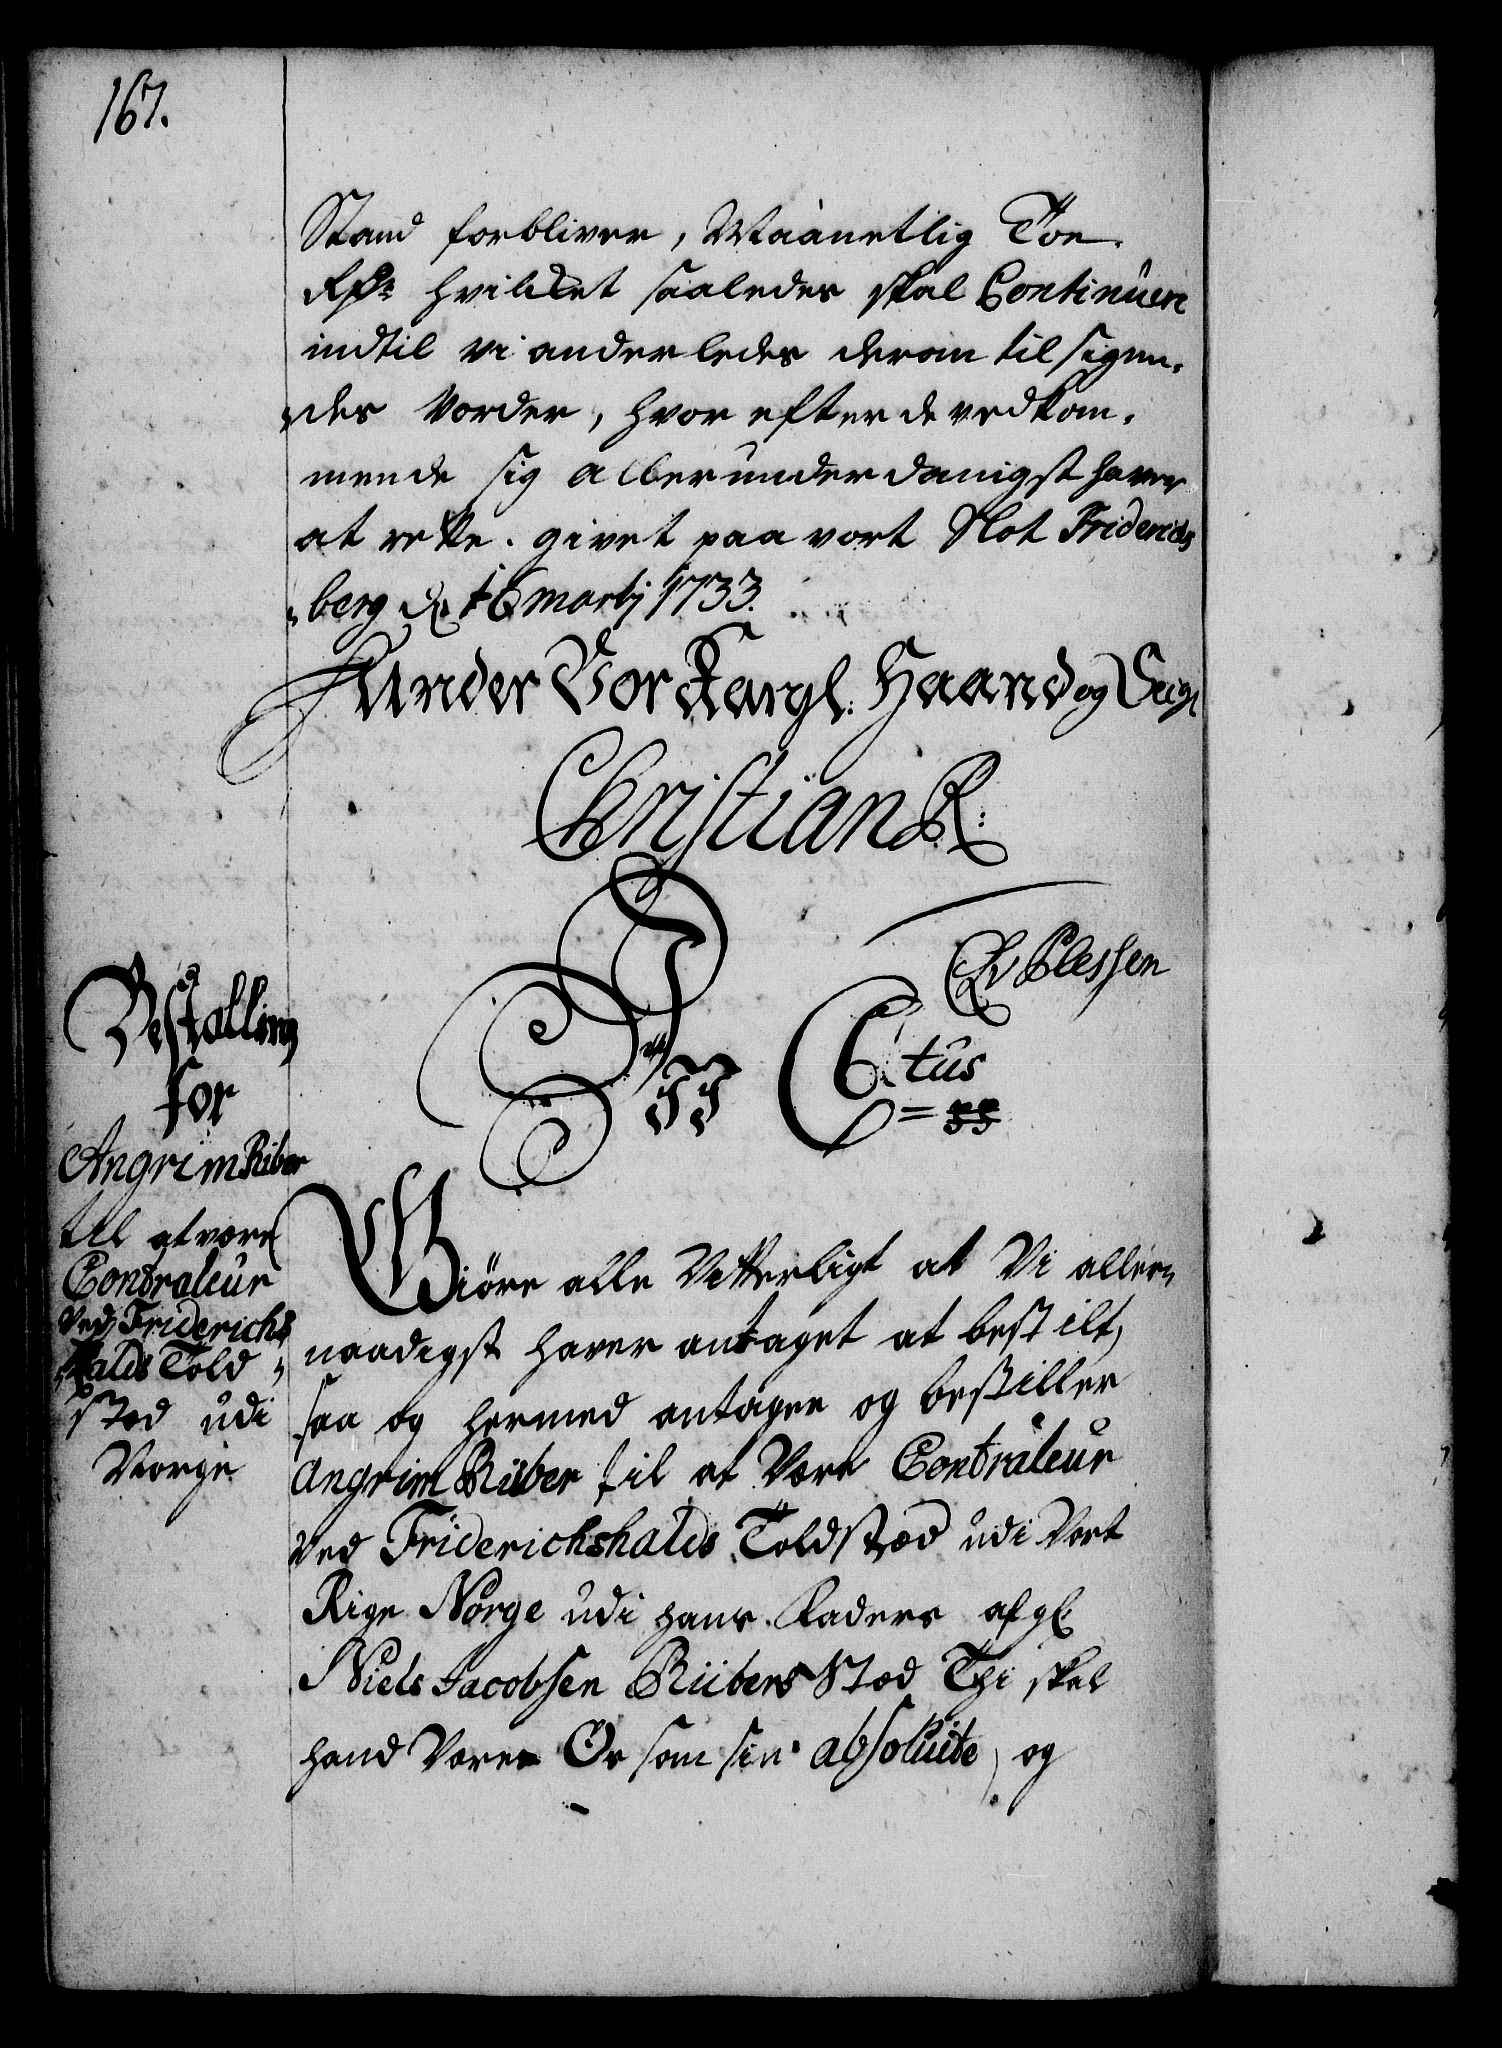 167.
Stand forbliver, Maanetlig Toe
Rdr hvilcket saaledes skal Continuere
indtil vi anderledes derom tilsigen-
des vorder, hvor efter de vedkom-
mende sig allerunderdanigst haver
at rette. givet paa vort Slot Friderichs
berg d. 16 martij 1733.
Under Vor Kongl. Haand og Seigl
Christian R:
CAv Plessen
Vii C 6tus
Bestalling
for
Angrim Riber
til at være
Contraleur
ved Friderichs
halds Told
stæd udi
Norge
Giöre alle Vitterligt at Vi aller-
naadigst haver antaget at bestilt,
saa og hermed antager og bestiller
Angrim Riiber til at Være Contraleur
ved Friderichshalds Toldstæd udi Vort
Rige Norge udi hans Faders afgl
Niels Jacobsen Riibers Stæd Thi skal
hand Være Os som sin absolute og